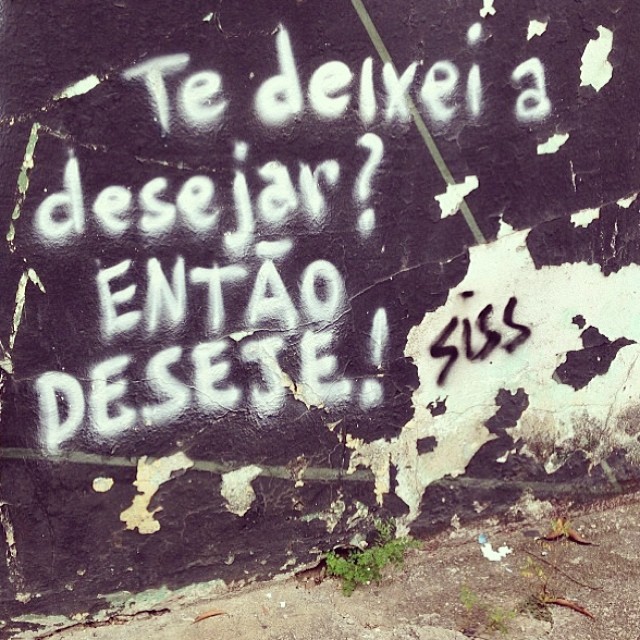 Te deixei a
desejar?
ENTÃO
DESEJE!
siss